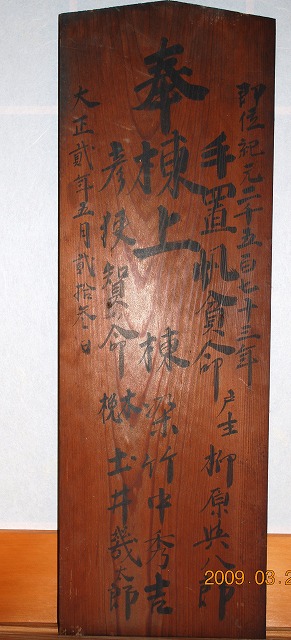 即位紀元二千五百七十三年
戸主 柳原與八郎
手置帆負命
奉棟上 棟梁 竹中秀吉
彦狭賀命
木挽 土井幾太郎
大正貳年五月貳拾参日
2009.03.2